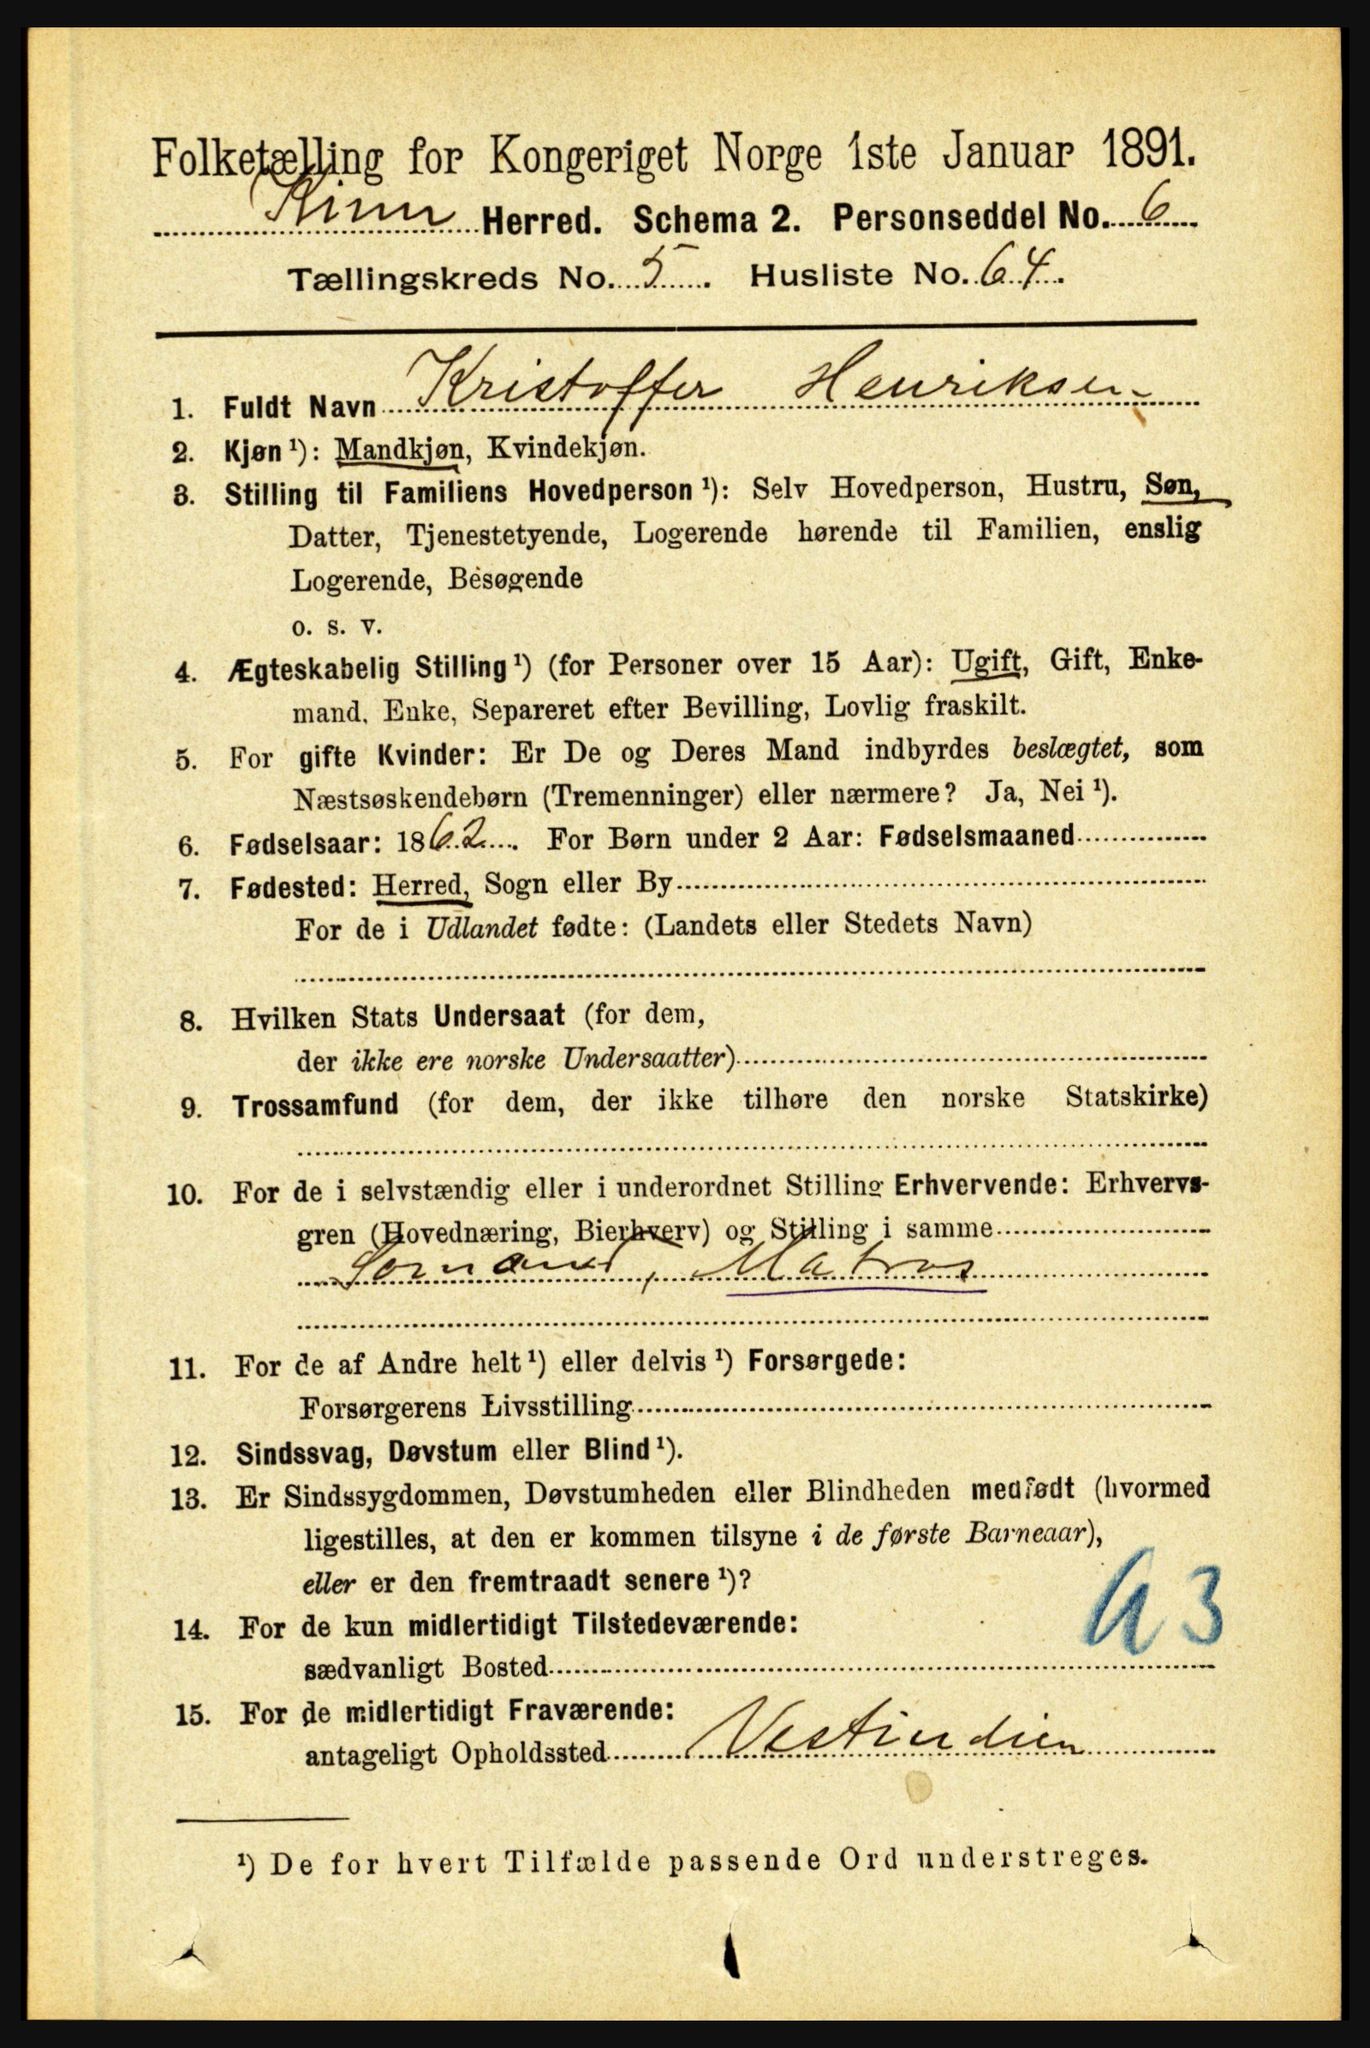 Folketælling for Kongeriget Norge 1ste Januar 1891.
Kinn Herred. Schema 2. Personseddel No. 6
Tællingskreds No. 5. Husliste No. 64.
1. Fuldt Navn Kristoffer Henriksen
2. Kjøn ¹): Mandkjøn, Kvindekjøn.
3. Stilling til Familiens Hovedperson ¹): Selv Hovedperson, Hustru, Søn,
Datter, Tjenestetyende, Logerende hørende til Familien, enslig
Logerende, Besøgende
o. s. v.
4. Ægteskabelig Stilling ¹) (for Personer over 15 Aar): Ugift, Gift, Enke-
mand, Enke, Separeret efter Bevilling, Lovlig fraskilt.
5. For gifte Kvinder: Er De og Deres Mand indbyrdes beslægtet, som
Næstsøskendebørn (Tremenninger) eller nærmere? Ja, Nei ¹).
6. Fødselsaar: 1862. For Børn under 2 Aar: Fødselsmaaned
7. Fødested: Herred, Sogn eller By
For de i Udlandet fødte: (Landets eller Stedets Navn)
8. Hvilken Stats Undersaat (for dem,
der ikke ere norske Undersaatter)
9. Trossamfund (for dem, der ikke tilhøre den norske Statskirke)
10. For de i selvstændig eller i underordnet Stilling Erhvervende: Erhvervs-
gren (Hovednæring, Bierhverv) og Stilling i samme
Sømand, Matros
11. For de af Andre helt ¹) eller delvis ¹) Forsørgede:
Forsørgerens Livsstilling
12. Sindssvag, Døvstum eller Blind ¹).
13. Er Sindssygdommen, Døvstumheden eller Blindheden medfødt (hvormed
ligestilles, at den er kommen tilsyne i de første Barneaar),
eller er den fremtraadt senere ¹)?
14. For de kun midlertidigt Tilstedeværende:
sædvanligt Bosted
15. For de midlertidigt Fraværende:
antageligt Opholdssted Vestindien
¹) De for hvert Tilfælde passende Ord understreges.